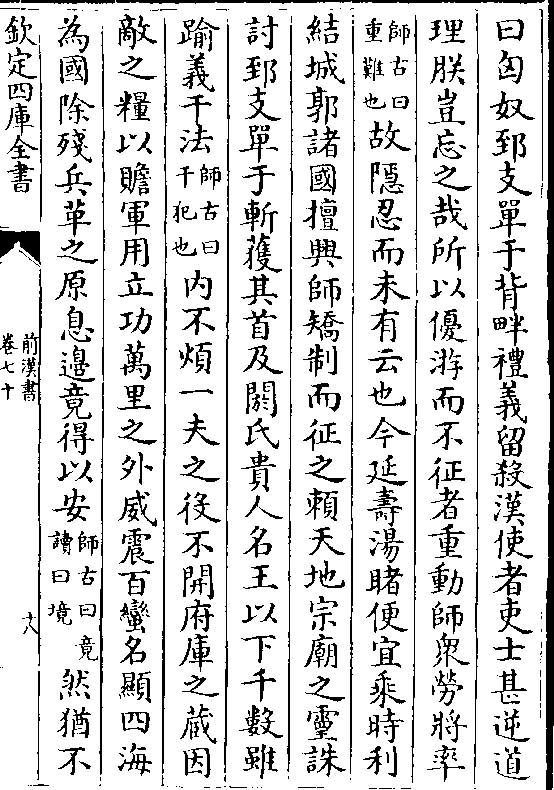 曰匈奴郅支單于背畔禮義留殺漢使者吏士甚逆道
理朕豈忘之哉所以優游而不征者重動師衆勞將率
師古曰
重難也故隱忍而未有云也今延壽湯睹便宜乘時利
結城郭諸國擅興師矯制而征之賴天地宗廟之靈誅
討郅支單于斬獲其首及閼氏貴人名王以下千數雖
踰義干法師古曰
干犯也内不煩一夫之役不開府庫之蔵因
敵之糧以贍軍用立功萬里之外威震百蠻名顯四海
為國除殘兵革之原息邉竟得以安師古曰竟
讀曰境然猶不
欽定四庫全書
前漢書
卷七十
十八